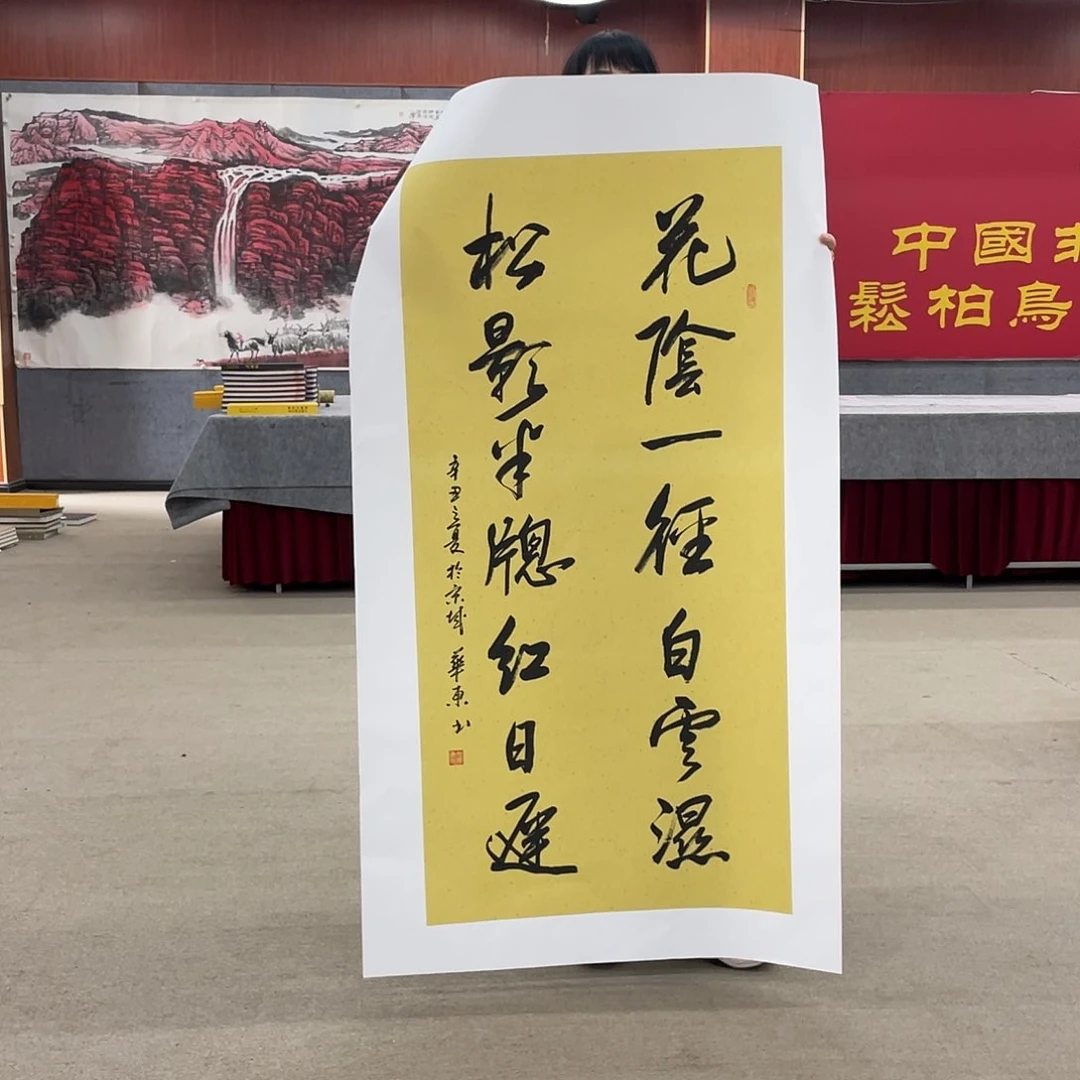 花陰一徑白雲濕
松影半牕紅日遲
辛丑之夏於京城 華東书
中國非
鬆柏鳥